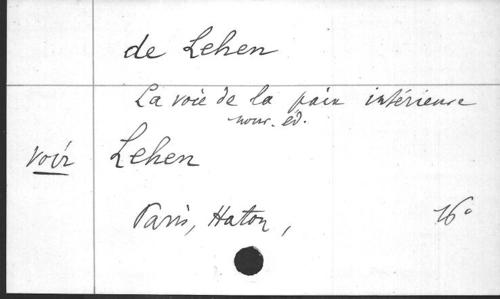 de Lehen
La voie de la paix intérieure
nouv. éd.
voir Lehen
Paris, Haton, 16°